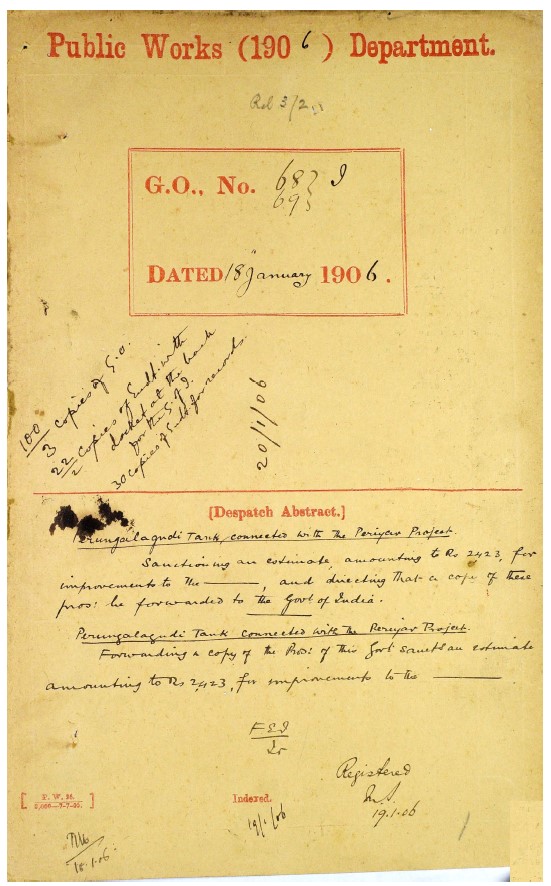 Public Works (1906) Department.
G.O., No. 68 } I
69 }
DATED 18 January 1906.
100
3 copies of G.O.
22
2 copies of Endt. with
docket at the back
for the G. of I.
30 copies of Endt. for records.
20/1/06
[Despatch Abstract.]
Perungalagudi Tank, connected with the Periyar Project.
Sanctioning an estimate, amounting to Rs 2423, for
improvements to the ———, and directing that a copy of these
pros: be forwarded to the Govt of India.
Perungalagudi Tank connected with the Periyar Project.
Forwarding a copy of the Pros: of this Govt sanctg an estimate
amounting to Rs 2,423, for improvements to the ———
Registered
19.1.06
[P. W. 26.
Indexed.
19/1/06
18.1.06.